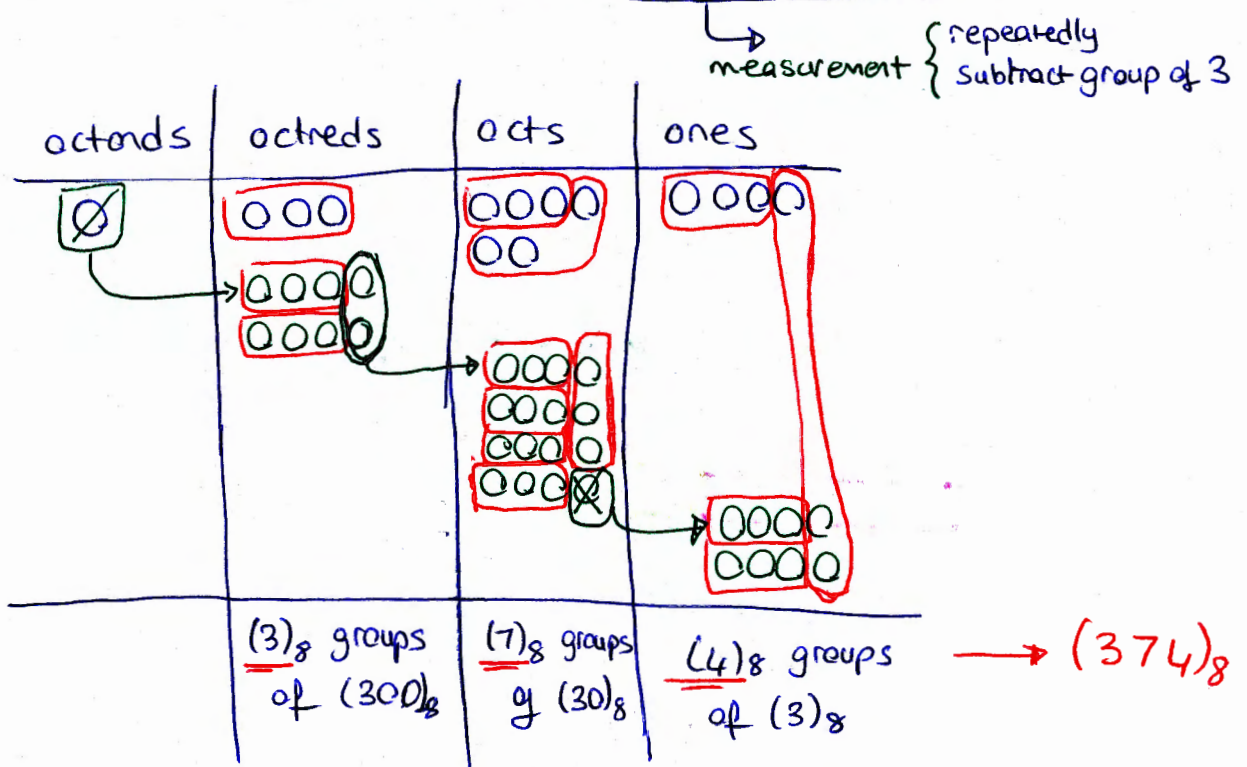 measurement { repeatedly
subtract group of 3
octands octreds octs ones
(3)₈ groups
of (300)₈
(7)₈ groups
of (30)₈
(4)₈ groups
of (3)₈
→ (374)₈